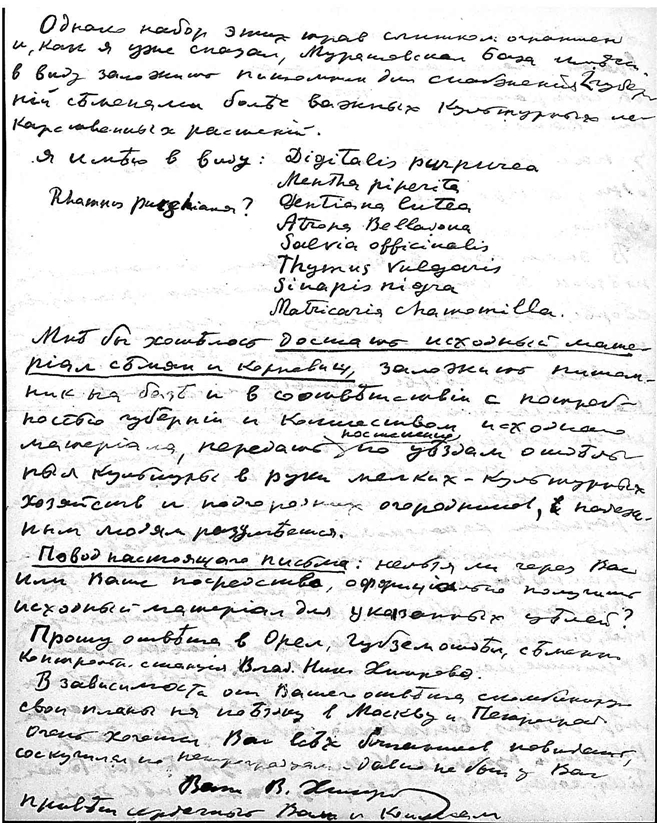 Однако набор этих трав слишком ограничен
и, как я уже сказал, Муратовская База имеет
в виду заложить питомник для снабжения губер
ний сѣменами болѣе важных культурных ле
карственных растений.
Я имѣю в виду: Digitalis purpurea
Mentha piperita
Rhamnus purshiana? Gentiana lutea
Atropa Belladona
Salvia officinalis
Thymus vulgaris
Sinapis nigra
Matricaria chamomilla.
Мнѣ бы хотѣлось достать исходный мате-
ріал сѣмян и корневищ, заложить питом-
ник на базѣ и в соотвѣтствіи с потреб
ностью губерніи и количеством исходного
матеріала, передать постепенно по уѣздам отдѣль
ныя культуры в руки мелких-культурных
хозяйств и подгородних огородников, надеж-
ным людям разумѣется.
Повод настоящаго письма: нельзя ли через Вас
или Ваше посредство, официально получить
исходный матеріал для указанных цѣлей?
Прошу отвѣта в Орел, Губземотдѣл, сѣменн
контрольн. станція Влад. Ник. Хитрово.
В зависимости от Вашего отвѣта скомбинирую
свои планы на поѣздку в Москву и Петроград
очень хочется Вас всѣх повидать,
соскучился давно не был у Вас
Ваш В. Хитрово
Привѣт сердечный Вам и